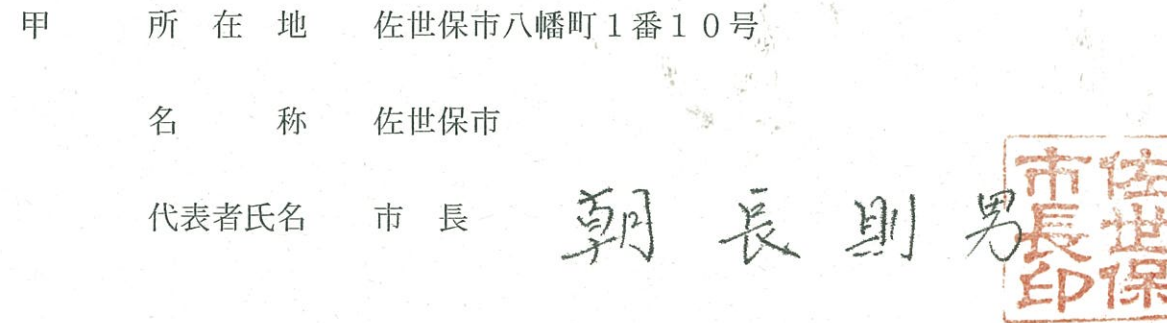 甲　所　在　地　佐世保市八幡町１番１０号
名　　称　佐世保市
代表者氏名　市　長　朝長則男
佐世保
市長印